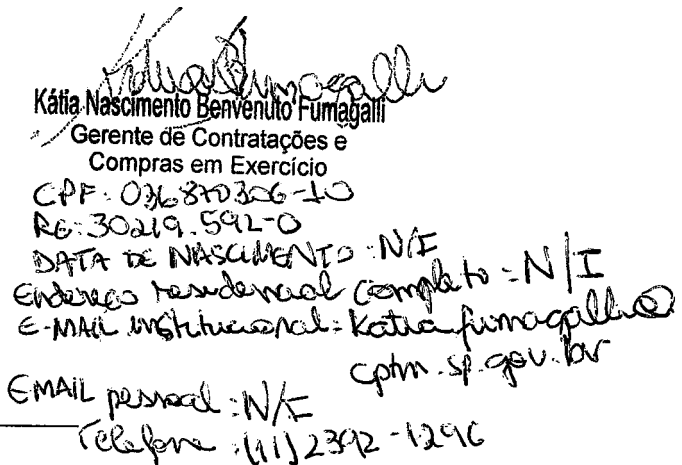 Kátia Fumagalli
Kátia Nascimento Benvenuto Fumagalli
Gerente de Contratações e
Compras em Exercício
CPF: 036870306-10
RG: 30219.592-0
DATA DE NASCIMENTO: N/I
Endereço residencial completo: N/I
E-MAIL institucional: katia.fumagalli@
cptm.sp.gov.br
EMAIL pessoal: N/I
Telefone: (11) 2392-1296